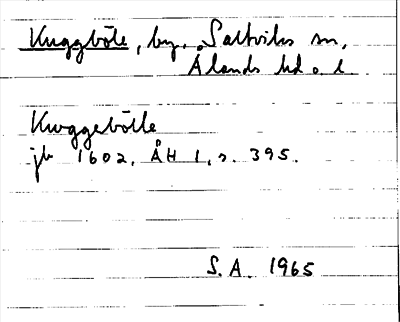 Kuggböle, by, Saltviks sn,
Ålands hd o. l.
Kwggebölle
jb 1602, ÅH 1, s. 395.
S.A. 1965